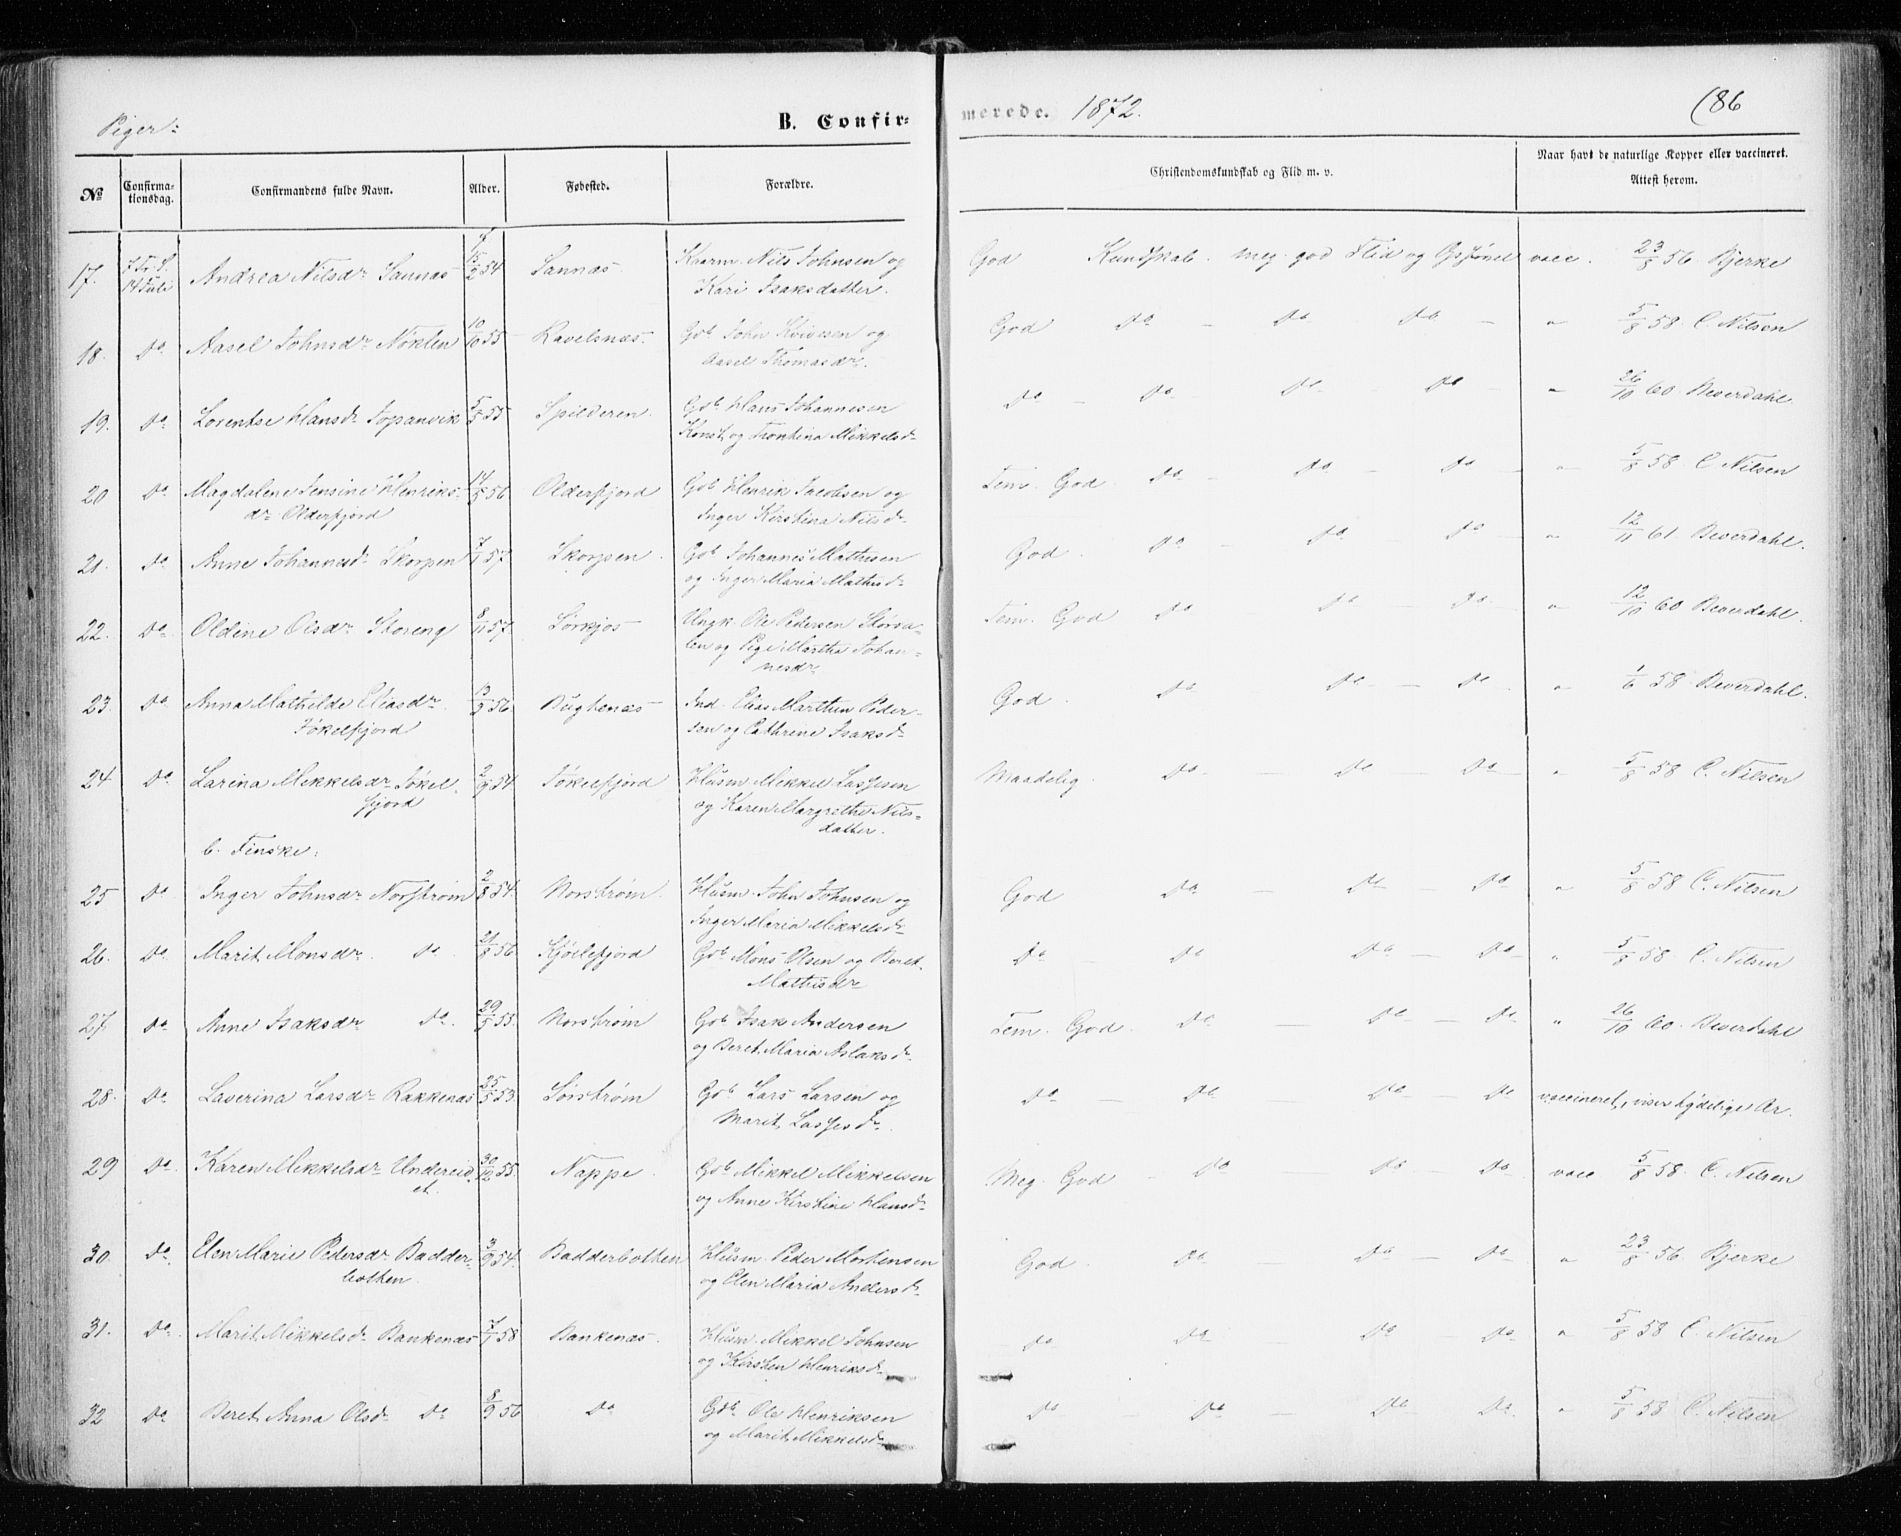 Piger:
B. Confirmerede. 1872.
186
No
Confirmationsdag.
Confirmandens fulde Navn.
Alder.
Fødested.
Forældre.
Christendomskundskab og Flid m. v.
Naar havt de naturlige Kopper eller vaccineret. Attest herom.
17. 7 Tr. S. 14 Juli Andrea Nilsdr Sannas 15/2 54 Sannas. Nils Johnsen og God Kundskab. meg. god Flid og vacc. 23/8 56. Bjerke
Kari Isaksdatter.
18. Do Aasel Johnsdr Nøklen 10/10 55 Ravelsnæs. Gdb John Kvivesen og God Do Do Do " 5/8 58 C. Nilsen
Aasel Thomasdr.
19. Do Lorentse Hansdr Sopanvik 5/5 55 Spilderen. Gdb Hans Johannesen Do Do Do Do " 26/10 60. Beverdahl.
Kønst. og Trontina Mikkelsdr
20 Do Magdalene Jensine Henriks- 14/5 56 Olderfjord Gdb Henrik Jacobsen og Tem. God. Do Do Do " 5/8 58. C Nilsen
dr Olderfjord Inger Kirstina Nilsdr
21. Do Anne Johannesdr Skorpen 7/1 57. Skorpen. Gdb Johannes Mathisen God. Do Do Do " 12/11 61. Beverdahl.
og Inger Maria Mathisdr
22. Do Oldine Olsdr Storeng 8/11 57. Sørkjos Ungk. Ole Pedersen Storsa- Tem. God Do Do Do " 12/10 60 Beverdahl.
len og Pige Martha Johan-
nesdr
23 Do Anna Mathilde Eliasdr 13/9 56. Bugtenæs Ind. Elias Marthin Peder- God. Do Do Do " 1/6 58. Beverdahl.
Jøkelfjord sen og Cathrene Isaksdr
24 Do Larina Mikkelsdr Jøkel- 2/9 54 Jøkelfjord Husm Mikkel Lassesen Maadelig. Do Do Do " 5/8 58 C. Nilsen
fjord og Karen Margrethe Nils-
datter.
b. Finske:
25 Do Inger Johnsdr Norstrøm 2/8 54. Norstrøm. Husm. John Johnsen og God Do Do Do " 5/8 58 C. Nilsen
Inger Maria Mikkelsdr
26. Do Marit Monsdr Do 21/8 56 Kjølefjord Gdb Mons Olsen og Beret Do Do Do Do " 5/8 58. C. Nilsen
Mathisdr
27 Do Anne Isaksdr Do. 29/5 55. Norstrøm Gdb Isak Andersen Tem. God. Do Do Do " 26/10 60. Beverdahl
og Beret Maria Aslaksdr.
28. Do Laverina Larsdr Rakkenæs 25/5 53. Sørstrøm Gdb Lars Larsen og Do Do Do Do vaccineret, viser tydelige Ar.
Marit Lassesdr.
29 Do. Karen Mikkelsdr Undereid- 30/12 55. Nappe. Gdb Mikkel Mikkelsen Meg. God Do Do Do vacc 5/8 58. C. Nilsen
et. og Anne Kirstine Hansdr
30. Do Elen Marie Pedersdr Badder- 3/9 54. Badderbotten Husm. Peder Mortensen God. Do Do Do " 23/8 56. Bjerke
botten. og Elen Maria Andersdr.
31. Do. Marit Mikkelsdr Bankenæs 7/1 58. Bankenæs. Husm. Mikkel Johnsen Do Do Do Do " 5/8 58 C. Nilsen
og Kirsten Henriksdr
32 Do Beret Anna Olsdr Do 8/9 56 Do Gdb. Ole Henriksen Do Do Do Do " 5/8 58 C. Nilsen
og Marit Mikkelsdr